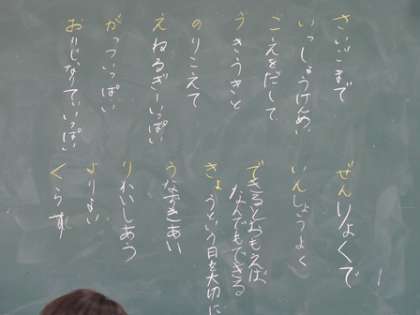 さいごまで
いっしょうけんめい
こえをだして
うきうきと
のりこえて
えねるぎーいっぱい
がっついっぱい
おりじなりてぃいっぱい
ぜんりょくで
いんしょうよく
できるとおもえば
なんでもできる
きょうという日を大切に
うなずきあい
りかいしあう
よりよい
くらす